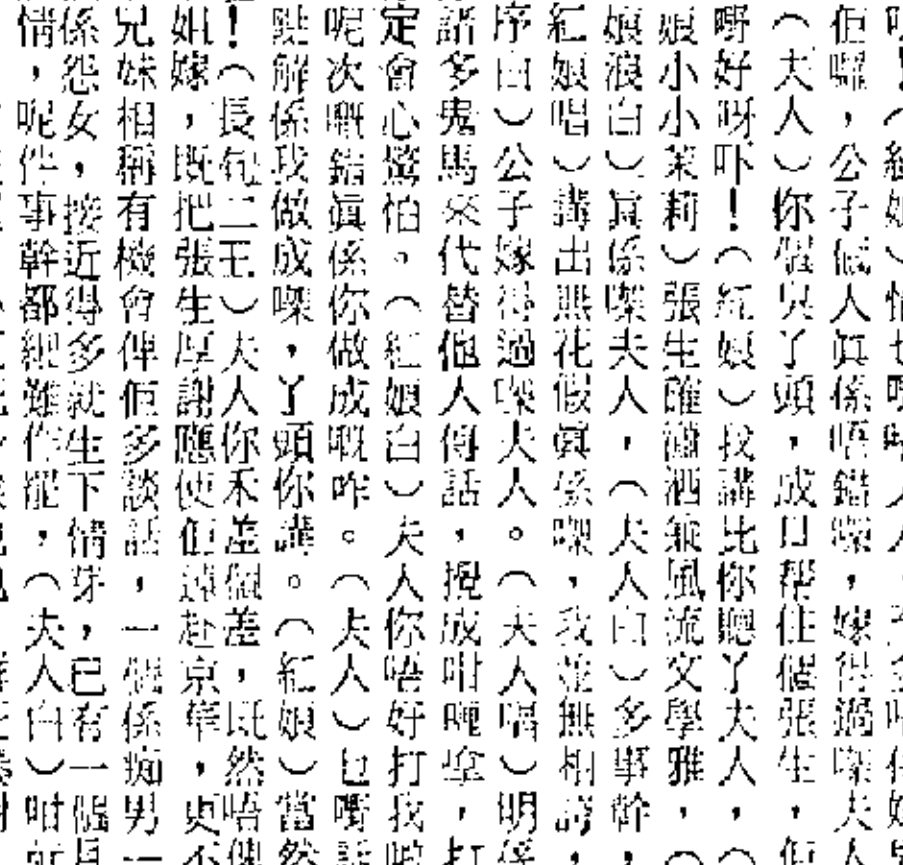 佢囉，公子個人真係唔錯㗎，嫁得過㗎夫人
（夫人）你個臭丫頭，成日幫住個張生，佢
嘢好呀吓！（紅娘）我講比你聽丫大人，（
娘小小茉莉）張生確瀟洒兼風流文學雅，（
娘浪白）真係㗎夫人，（夫人白）多事幹，
紅娘唱）講出無花假真係㗎，我並無相謗，
序白）公子嫁得過㗎夫人。（夫人唱）明係
話多鬼馬來代替他人傳話，攪成咁，打
定會心驚怕。（紅娘白）夫人你唔好打我
呢次嘅錯真係你做成嘅咋。（夫人）乜嘢話
解係我做成㗎，丫頭你講。（紅娘）當然
！（長句二王）夫人你禾差個差，既然唔
姐嫁，既把張生厚謝應使佢遠赴京華，更不
兄妹相稱有機會伴佢多談話，一個係痴男一
係怨女，接近得多就生下情芽，已有一個
情，呢件事幹都經難作罷，（夫人白）咁